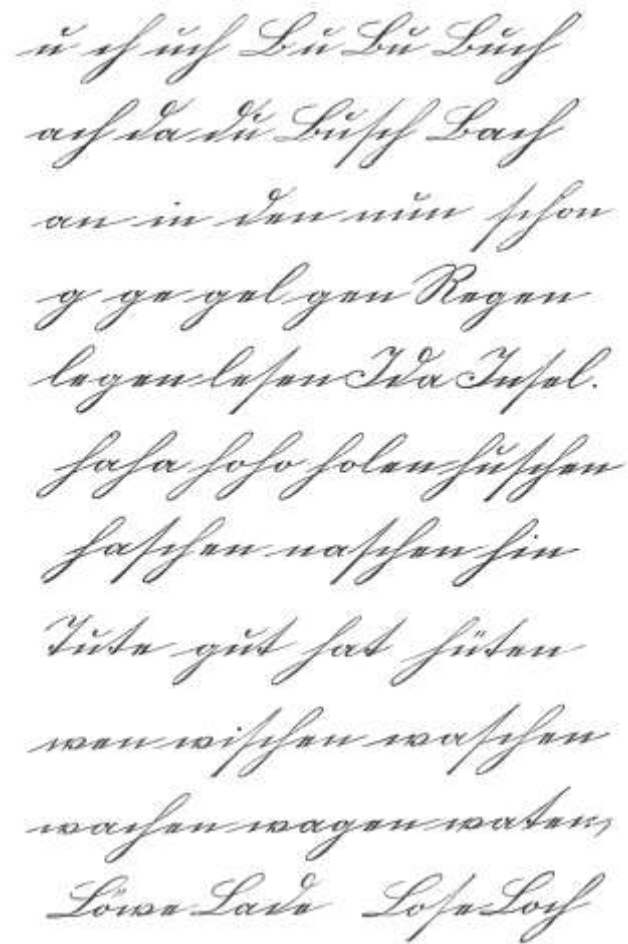 u ch uch Bu Bu Buch
ach da du Busch Bach
an in den nun schon
g ge gel gen Regen
legen lesen Ida Insel.
haha hoho holen huschen
haschen naschen hin
Tute gut hat hüten
wen wischen waschen
wachen wagen waten,
Löwe Lade Lose Loch